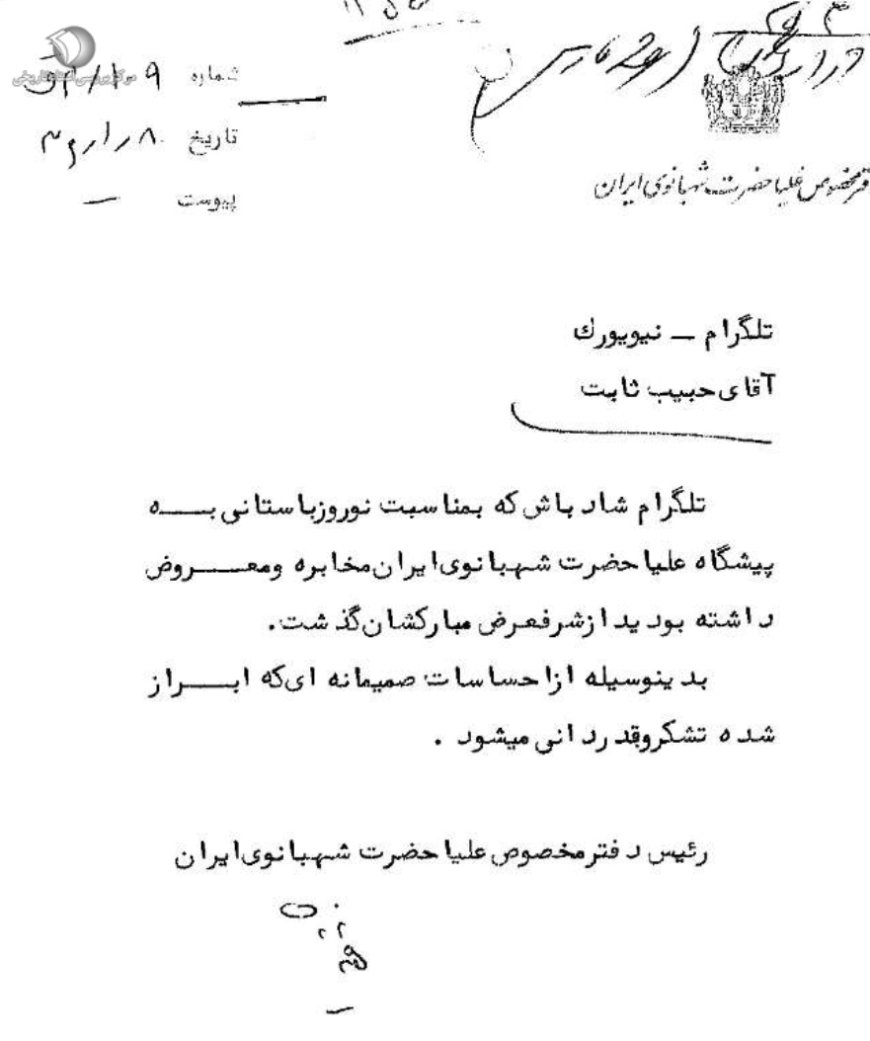 مرکز بررسی اسناد تاریخی
شماره
تاریخ
پیوست
دفتر مخصوص علیاحضرت شهبانوی ایران
تلگرام ــ نیویورک
آقای حبیب ثابت
تلگرام شاد باش که بمناسبت نوروز باستانی بــه
پیشگاه علیاحضرت شهبانوی ایران مخابره ومعــروض
داشته بودید از شرفعرض مبارکشان گذشت.
بدینوسیله از احساسات صمیمانه ای که ابــراز
شده تشکر وقدردانی میشود .
رئیس دفتر مخصوص علیاحضرت شهبانوی ایران